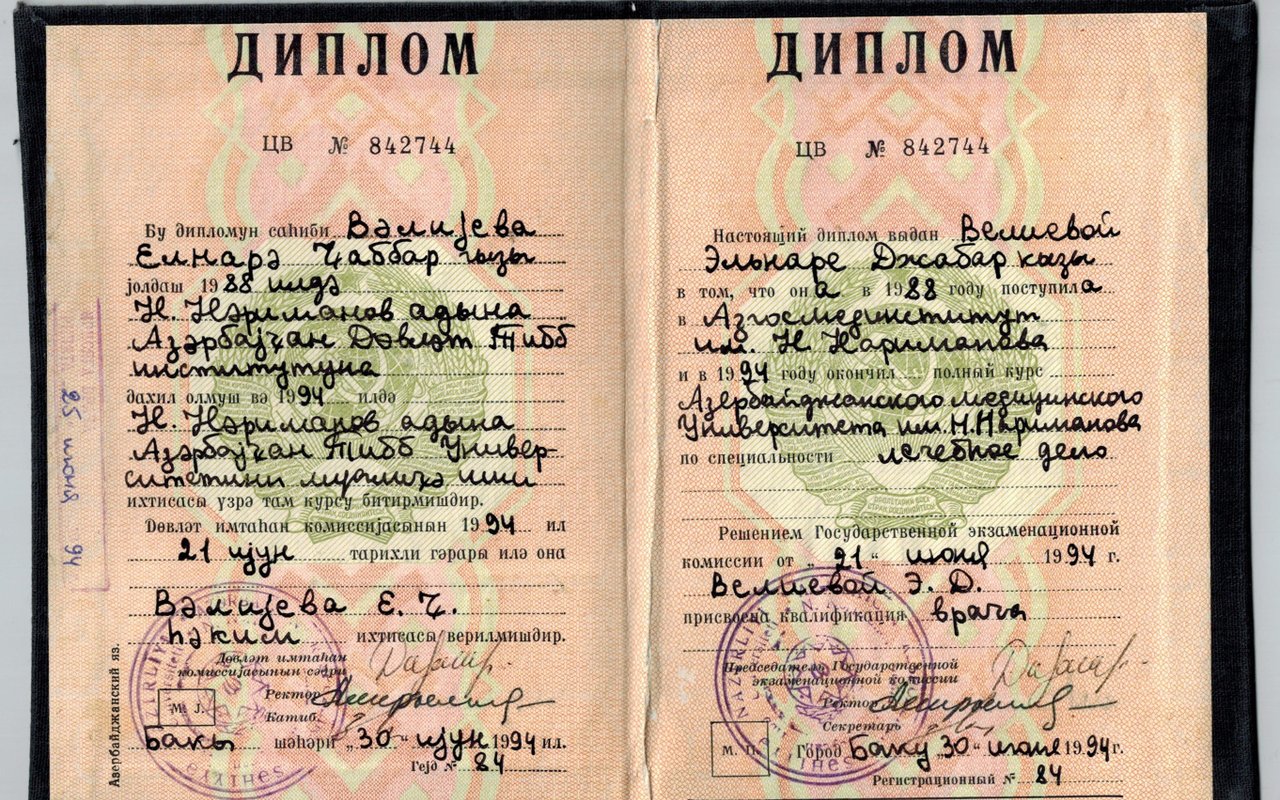 ДИПЛОМ
ЦВ № 842744
Бу дипломун саһиби Вәлијева
Елнарә Ҹаббар гызы
јолдаш 1988 илдә
Н. Нәриманов адына
Азәрбајҹан Дөвләт Тибб
институтуна
дахил олмуш вә 1994 илдә
Н. Нәриманов адына
Азәрбајҹан Тибб Универ-
ситетини муалиҹә иши
ихтисасы үзрә там курсу битирмишдир.
Дөвләт имтаһан комиссијасынын 1994 ил
21 ијун тарихли гәрары илә она
Вәлијева Е. Ҹ.
һәким ихтисасы верилмишдир.
Дөвләт имтаһан
комиссијасынын сәдри
Ректор
Катиб.
М. Ј.
Бакы шәһәри „30“ ијун 1994 ил.
Гејд № 84
Азербайджанский яз.
25 июня 94
ДИПЛОМ
ЦВ № 842744
Настоящий диплом выдан Велиевой
Эльнаре Джабар кызы
в том, что она в 1988 году поступила
в Азгосмединститут
им. Н. Нариманова
и в 1994 году окончил полный курс
Азербайджанского медицинского
Университета им. Н. Нариманова
по специальности лечебное дело
Решением Государственной экзаменационной
комиссии от „21“ июня 1994 г.
Велиевой Э. Д.
присвоена квалификация врача
Председатель Государственной
экзаменационной комиссии
Ректор
Секретарь
М. П.
Город Баку 30 „ июня 1994 г.
Регистрационный № 84